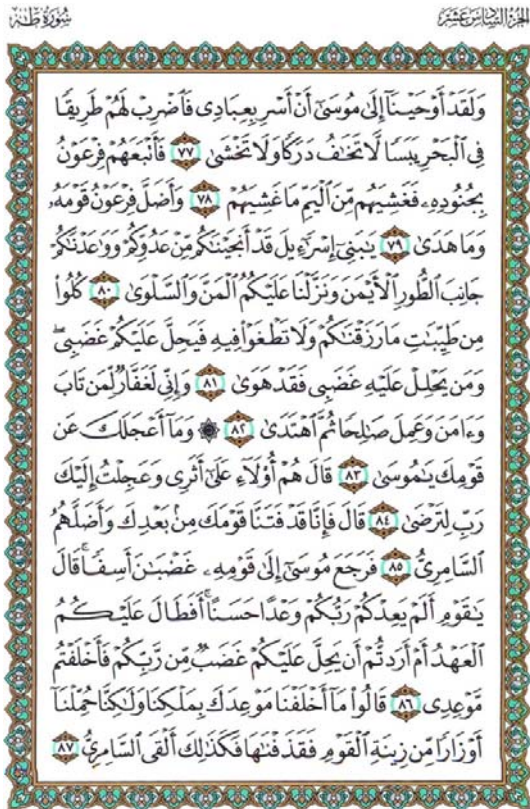 الجزء السادس عشر
سورة طه
وَلَقَدْ أَوْحَيْنَآ إِلَىٰ مُوسَىٰٓ أَنْ أَسْرِ بِعِبَادِى فَٱضْرِبْ لَهُمْ طَرِيقًا
فِى ٱلْبَحْرِ يَبَسًا لَّا تَخَٰفُ دَرَكًا وَلَا تَخْشَىٰ ٧٧ فَأَتْبَعَهُمْ فِرْعَوْنُ
بِجُنُودِهِۦ فَغَشِيَهُم مِّنَ ٱلْيَمِّ مَا غَشِيَهُمْ ٧٨ وَأَضَلَّ فِرْعَوْنُ قَوْمَهُۥ
وَمَا هَدَىٰ ٧٩ يَٰبَنِىٓ إِسْرَٰٓءِيلَ قَدْ أَنجَيْنَٰكُم مِّنْ عَدُوِّكُمْ وَوَٰعَدْنَٰكُمْ
جَانِبَ ٱلطُّورِ ٱلْأَيْمَنَ وَنَزَّلْنَا عَلَيْكُمُ ٱلْمَنَّ وَٱلسَّلْوَىٰ ٨٠ كُلُوا۟
مِن طَيِّبَٰتِ مَا رَزَقْنَٰكُمْ وَلَا تَطْغَوْا۟ فِيهِ فَيَحِلَّ عَلَيْكُمْ غَضَبِى ۖ
وَمَن يَحْلِلْ عَلَيْهِ غَضَبِى فَقَدْ هَوَىٰ ٨١ وَإِنِّى لَغَفَّارٌ لِّمَن تَابَ
وَءَامَنَ وَعَمِلَ صَٰلِحًا ثُمَّ ٱهْتَدَىٰ ٨٢ ۞ وَمَآ أَعْجَلَكَ عَن
قَوْمِكَ يَٰمُوسَىٰ ٨٣ قَالَ هُمْ أُو۟لَآءِ عَلَىٰٓ أَثَرِى وَعَجِلْتُ إِلَيْكَ
رَبِّ لِتَرْضَىٰ ٨٤ قَالَ فَإِنَّا قَدْ فَتَنَّا قَوْمَكَ مِنۢ بَعْدِكَ وَأَضَلَّهُمُ
ٱلسَّامِرِىُّ ٨٥ فَرَجَعَ مُوسَىٰٓ إِلَىٰ قَوْمِهِۦ غَضْبَٰنَ أَسِفًا ۚ قَالَ
يَٰقَوْمِ أَلَمْ يَعِدْكُمْ رَبُّكُمْ وَعْدًا حَسَنًا ۚ أَفَطَالَ عَلَيْكُمُ
ٱلْعَهْدُ أَمْ أَرَدتُّمْ أَن يَحِلَّ عَلَيْكُمْ غَضَبٌ مِّن رَّبِّكُمْ فَأَخْلَفْتُم
مَّوْعِدِى ٨٦ قَالُوا۟ مَآ أَخْلَفْنَا مَوْعِدَكَ بِمَلْكِنَا وَلَٰكِنَّا حُمِّلْنَآ
أَوْزَارًا مِّن زِينَةِ ٱلْقَوْمِ فَقَذَفْنَٰهَا فَكَذَٰلِكَ أَلْقَى ٱلسَّامِرِىُّ ٨٧